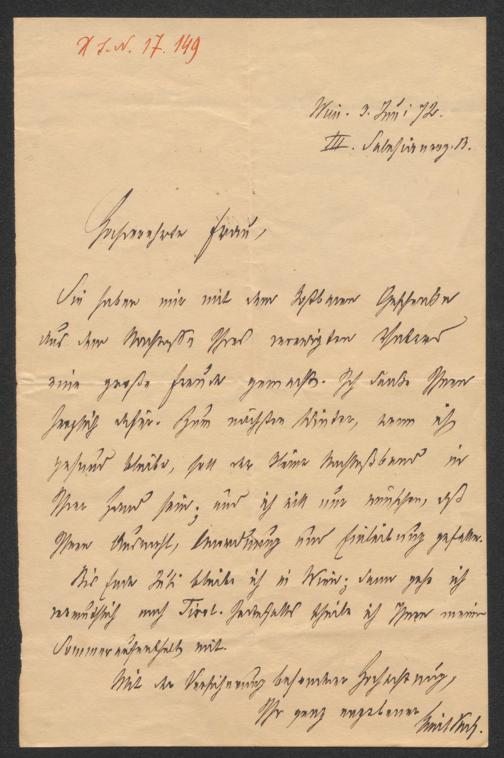 J.N. 17.149
Wien. 3. Juni 72.
III. Salesianerg. 13.
Hochverehrte Frau,
Sie haben mir mit dem kostbaren Geschenke
aus dem Nachlasse Ihres verewigten Vaters
eine große Freude gemacht. Ich danke Ihnen
herzlich dafür. Zum nächsten Winter, wenn ich
gesund bleibe, soll der kleine Nachlaßband in
Ihrer Hand sein; und ich will nur wünschen, daß
Ihnen Auswahl, Anordnung und Einleitung gefalle.
Bis Ende Juli bleibe ich in Wien; dann gehe ich
vermuthlich nach Tirol. Jedenfalls theile ich Ihnen meinen
Sommeraufenthalt mit.
Mit der Versicherung besonderer Hochachtung,
Ihr ganz ergebener
Emil Kuh.